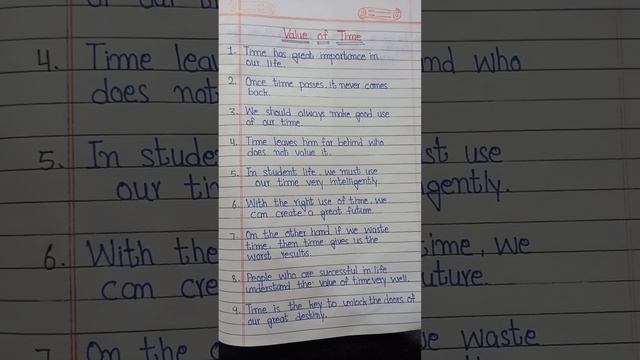 Value of Time
1. Time has great importance in
our life.
2. Once time passes, it never comes
back.
3. We should always make good use
of our time.
4. Time leaves him far behind who
does not value it.
5. In student life, we must use
our time very intelligently.
6. With the right use of time, we
can create a great future.
7. On the other hand if we waste
time, then time gives us the
worst results.
8. People who are successful in life
understand the value of time very well.
9. Time is the key to unlock the doors of
our great destiny.
4. Time leav
does not
5. In stude
our tim
6. With the
can crea
7. On the o
ind who
st use
igently.
time, we
uture.
we waste